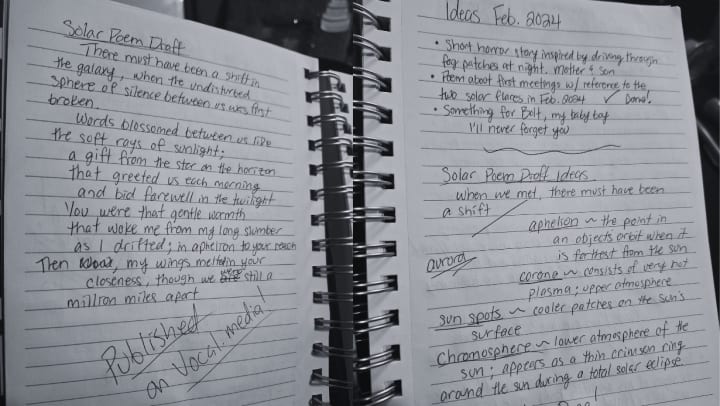 Solar Poem Draft
There must have been a shift in
the galaxy, when the undisturbed
sphere of silence between us was first
broken.
Words blossomed between us like
the soft rays of sunlight;
a gift from the star on the horizon
that greeted us each morning
and bid farewell in the twilight
You were that gentle warmth
that woke me from my long slumber
as I drifted; in aphelion to your reach
Then my wings melted in your
closeness, though we still a
million miles apart
Published
on Vocal.media!
Ideas Feb. 2024
• Short horror story inspired by driving through
fog patches at night. Mother & son
• Poem about first meetings w/ reference to the
two solar flares in Feb. 2024 ✓ Done!
• Something for Bolt, my baby boy
I'll never forget you
Solar Poem Draft Ideas
when we met, there must have been
a shift
aphelion ~ the point in
an objects orbit when it
is farthest from the sun
aurora
corona ~ consists of very hot
plasma; upper atmosphere
sun spots ~ cooler patches on the sun's
surface
chromosphere ~ lower atmosphere of the
sun; appears as a thin crimson ring
around the sun during a total solar eclipse.